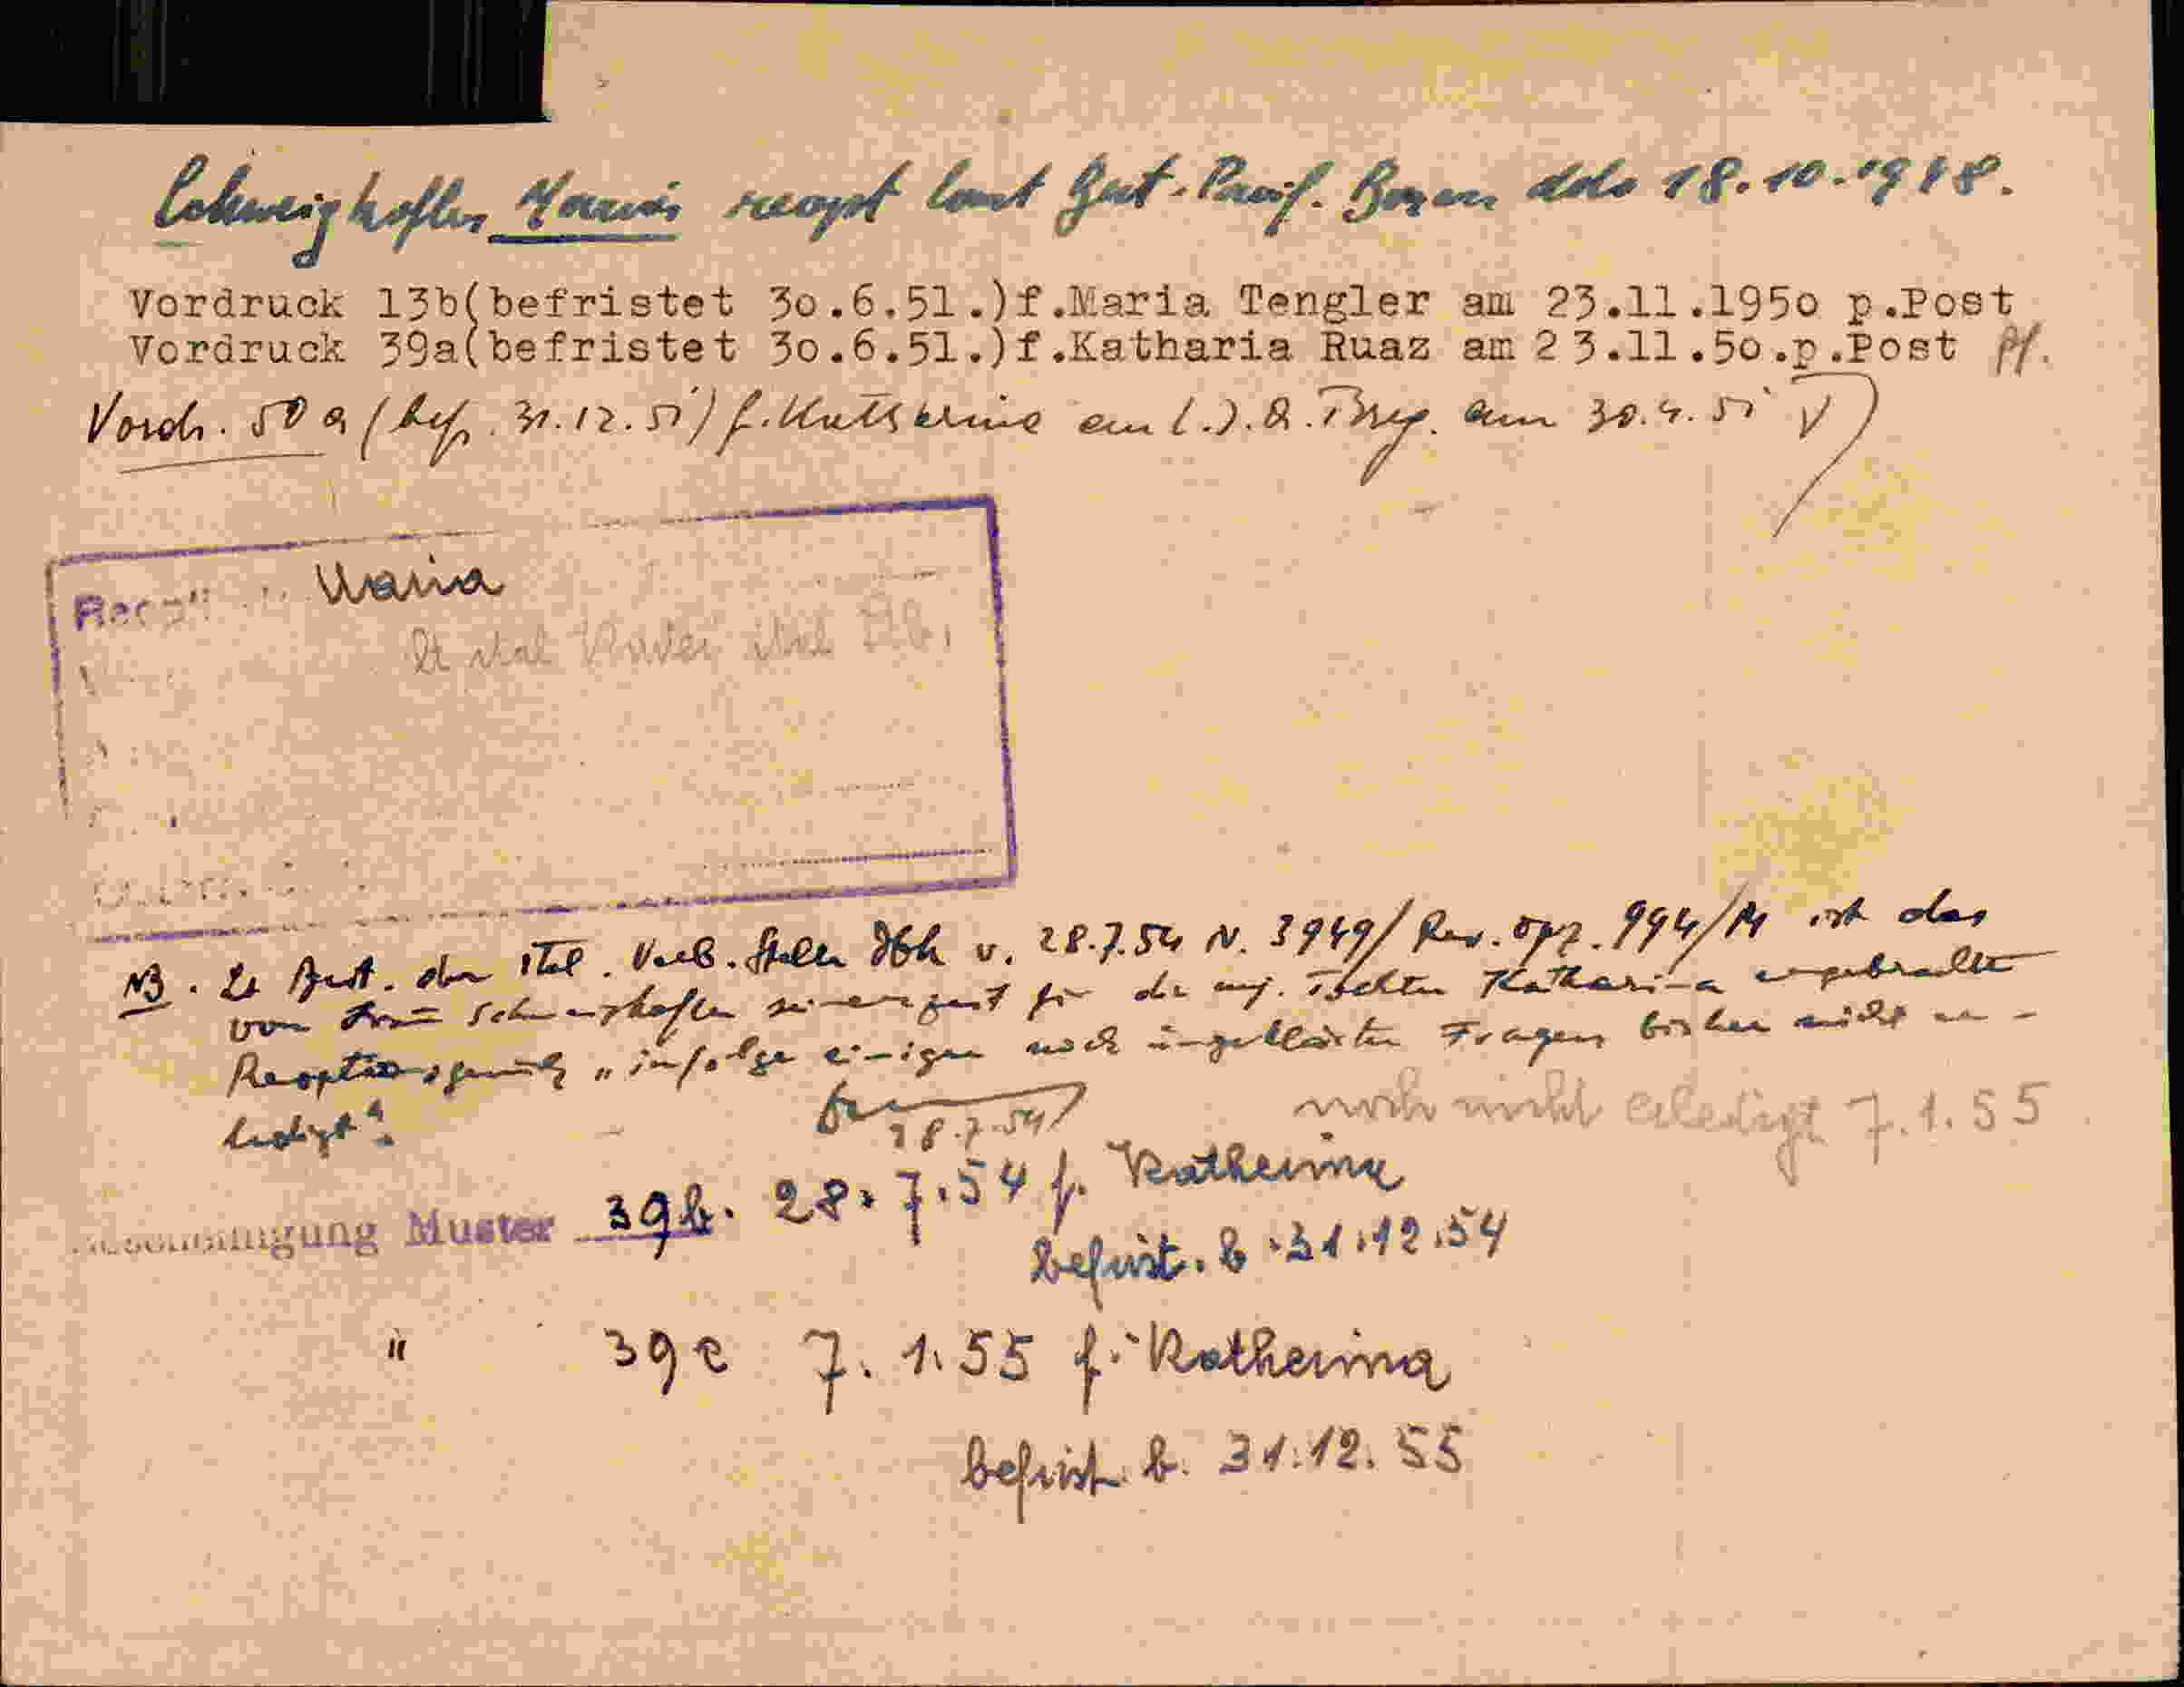 Schweighofler Maria reopt laut Gert. Präf. Bozen ddo 18.10.1948.
Vordruck 13b(befristet 3o.6.51.)f.Maria Tengler am 23.11.195o p.Post
Vordruck 39a(befristet 3o.6.51.)f.Katharia Ruaz am 23.11.5o.p.Post Pf.
Vordr. 50 a (bef. 31.12.51) f. Katharina am 30.4.51
Maria
lt ital
NB. Lt Best. der ital. Verb. Stelle Ibk v. 28.7.54 N. 3949/Rev. opz. 994/M ist das
von Frau Schweighofler seinerzeit für die mj. Tochter Katharina eingebrachte
Reoptionsgesuch „infolge einiger noch ungeklärter Fragen bisher nicht er-
ledigt".
28.7.54
noch nicht erledigt 7.1.55
Muster 39b. 28.7.54 f. Katharina
befrist. b. 31.12.54
" 39c 7. 1. 55 f. Katharina
befrist. b. 31.12.55